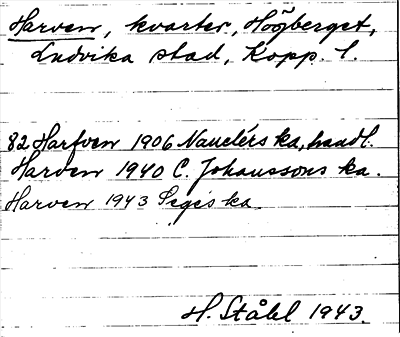 Harven, kvarter, Högberget,
Ludvika stad, Kopp. l.
82 Harfven 1906 Nauclérska, handl.
Harven 1940 C. Johanssons ka.
Harven 1943 ka
H. Ståhl 1943.